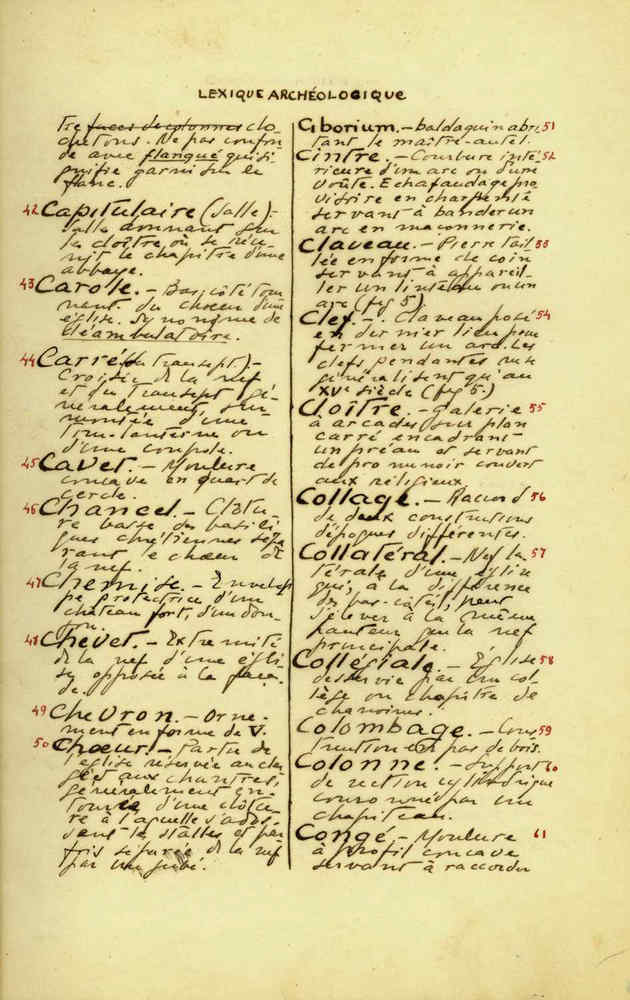 LEXIQUE ARCHÉOLOGIQUE
tre faces de colonnes clo
chetons. Ne pas confon
de avec flanqué qui si
gnifie garni sur le
flanc.
42 Capitulaire (salle):
salle donnant sur
le cloître, où se réu-
nit le chapitre d'une
abbaye.
43 Carole. - Bas, côté tour
nant du chœur d'une
église. Synonyme de
déambulatoire.
44 Carré (du transept). -
Croisée de la nef
et du transept gé-
néralement sur-
montée d'une
tour-lanterne ou
d'une coupole.
45 Cavet. - Moulure
concave en quart de
cercle.
46 Chancel. - Clôtu-
re basse des basili
ques chrétiennes sépa
rant le chœur de
la nef.
47 Chemise. - Envelop
pe protectrice d'un
château fort, d'un don-
jon.
48 Chevet. - Extrémité
de la nef d'une égli
se opposée à la faça-
de.
49 Chevron. - Orne-
ment en forme de V.
50 Chœur. - Partie de
l'église réservée au cler
gé et aux chantres,
généralement en-
tourée d'une clôtu-
re à laquelle s'ados-
sent les stalles et par
fois séparée de la nef
par un jubé.
Ciborium. - baldaquin abri 51
tant le maître-autel.
Cintre. - Courbure inté- 52
rieure d'un arc ou d'une
voûte. Echafaudage pro
visoire en charpente
servant à bander un
arc en maçonnerie.
Claveau. - Pierre tail- 53
lée en forme de coin
servant à appareil-
ler un linteau ou un
arc (fig 5)
Clef. - Claveau posé 54
en dernier lieu pour
fermer un arc. Les
clefs pendantes ne se
généralisent qu'au
XVe siècle (fig 5.)
Cloître. - galerie 55
à arcades sur plan
carré encadrant
un préau et servant
de promenoir couvert
aux religieux.
Collage. - Raccord 56
de deux constructions
d'époques différentes.
Collatéral. - Nef la- 57
térale d'une église
qui, à la différence
des bas-côtés, peut
s'élever à la même
hauteur que la nef
principale.
Collégiale. - Église 58
desservie par un col
lège ou chapitre de
chanoines.
Colombage. - Cons 59
truction en pas de bois.
Colonne. - Support 60
de section cylindrique
couronné par un
chapiteau.
Congé. - Moulure 61
à profil concave
servant à raccorder